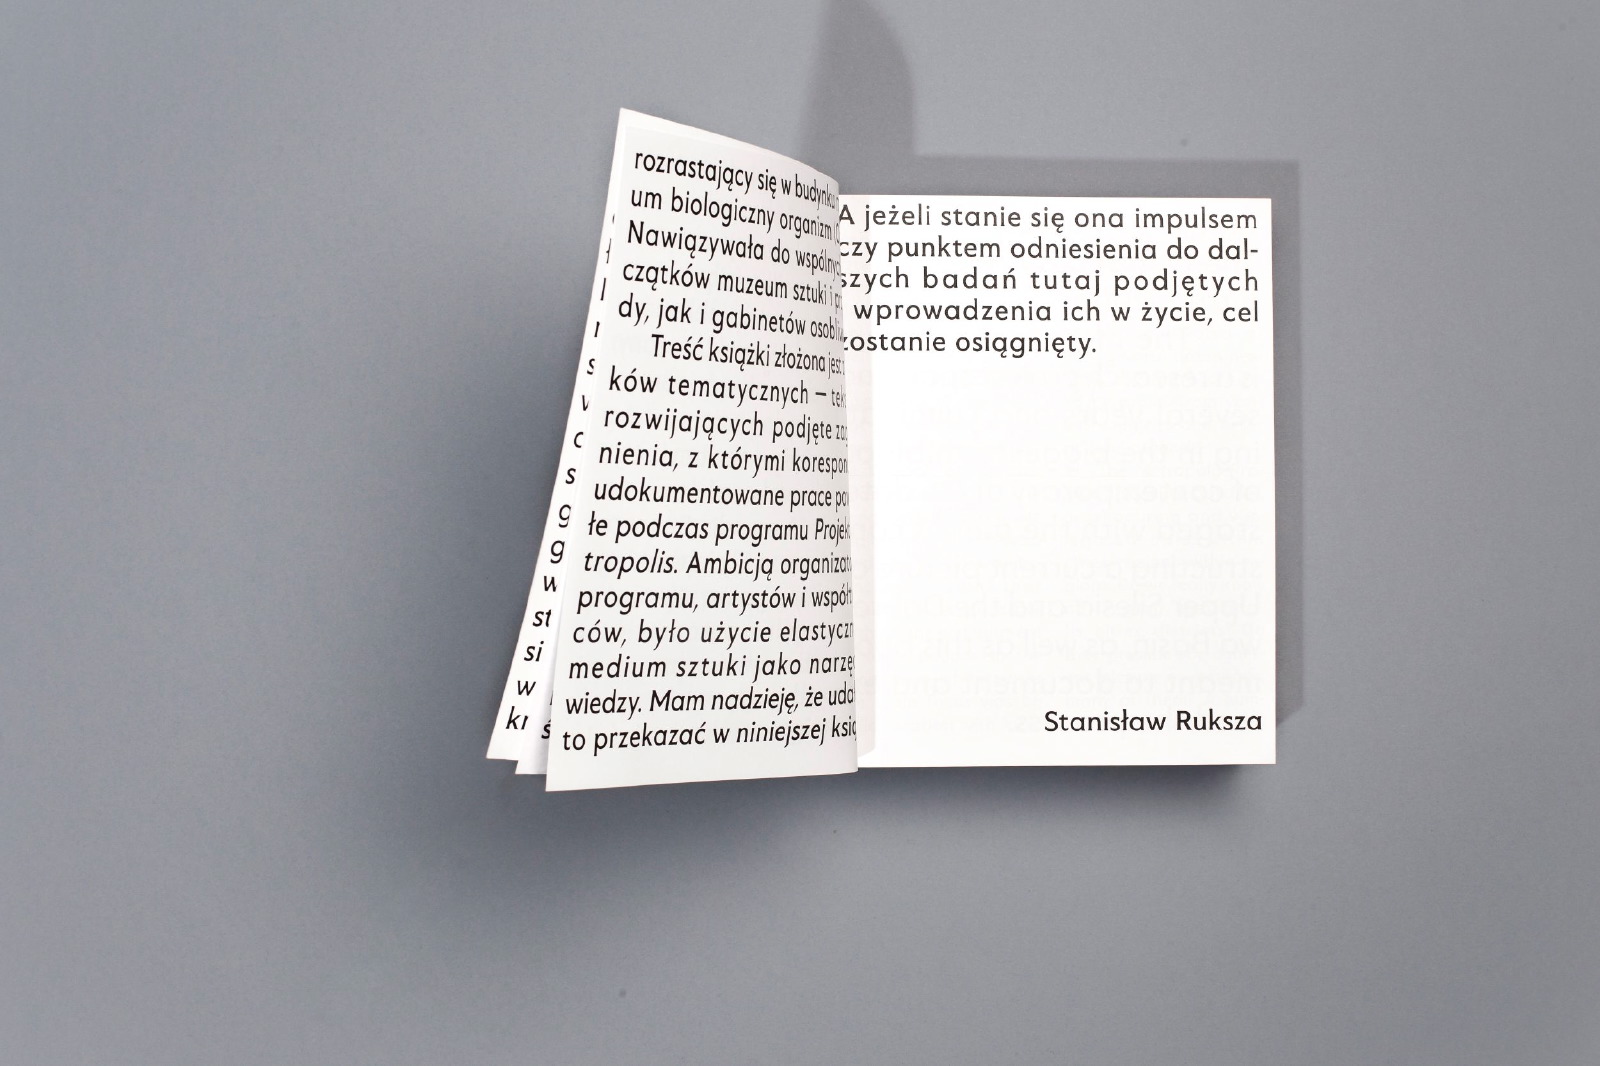 rozrastający się w budynku
um biologiczny organizm
Nawiązywała do wspólnyc
czątków muzeum sztuki i
dy, jak i gabinetów osobliw
Treść książki złożona jest
ków tematycznych –
rozwijających podjęte
nienia, z którymi korespon
udokumentowane prace
łe podczas programu Projek
tropolis. Ambicją organizat
programu, artystów i współt
ców, było użycie elastyczn
medium sztuki jako narzę
wiedzy. Mam nadzieję, że uda
to przekazać w niniejszej ksią
A jeżeli stanie się ona impulsem
czy punktem odniesienia do dal-
szych badań tutaj podjętych
wprowadzenia ich w życie, cel
zostanie osiągnięty.
Stanisław Ruksza